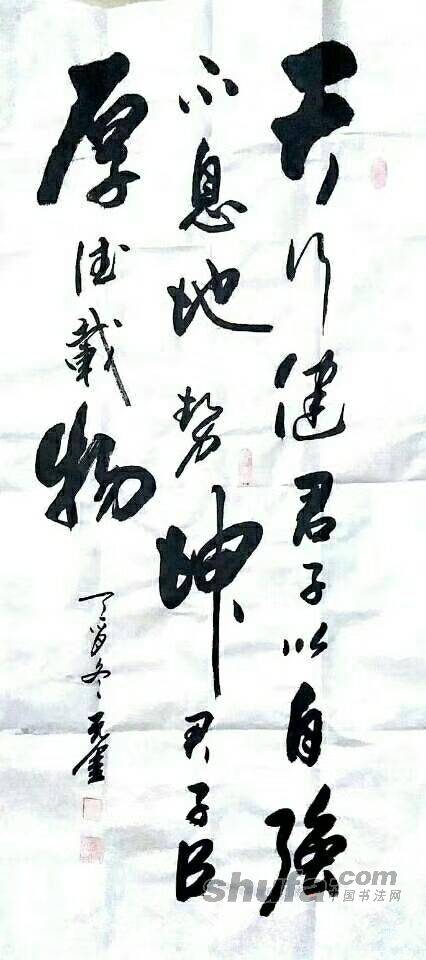 天行健君子以自強
不息地势坤君子以
厚德載物
丁酉冬
shufa.com
中国书法网